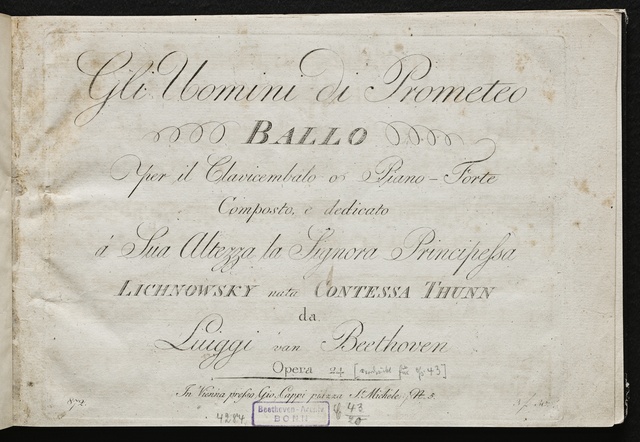 Gli Uomini di Prometeo
BALLO
per il Clavicembalo o Piano-Forte
Composto, e dedicato
á Sua Altezza la Signora Principessa
LICHNOWSKY nata CONTESSA THUNN
da
Luiggi van Beethoven
Opera 24 [ für op 43]
In Vienna presso Gio. Cappi piazza St. Michele N. 5.
4284
Beethoven-Archiv
BONN
43
20